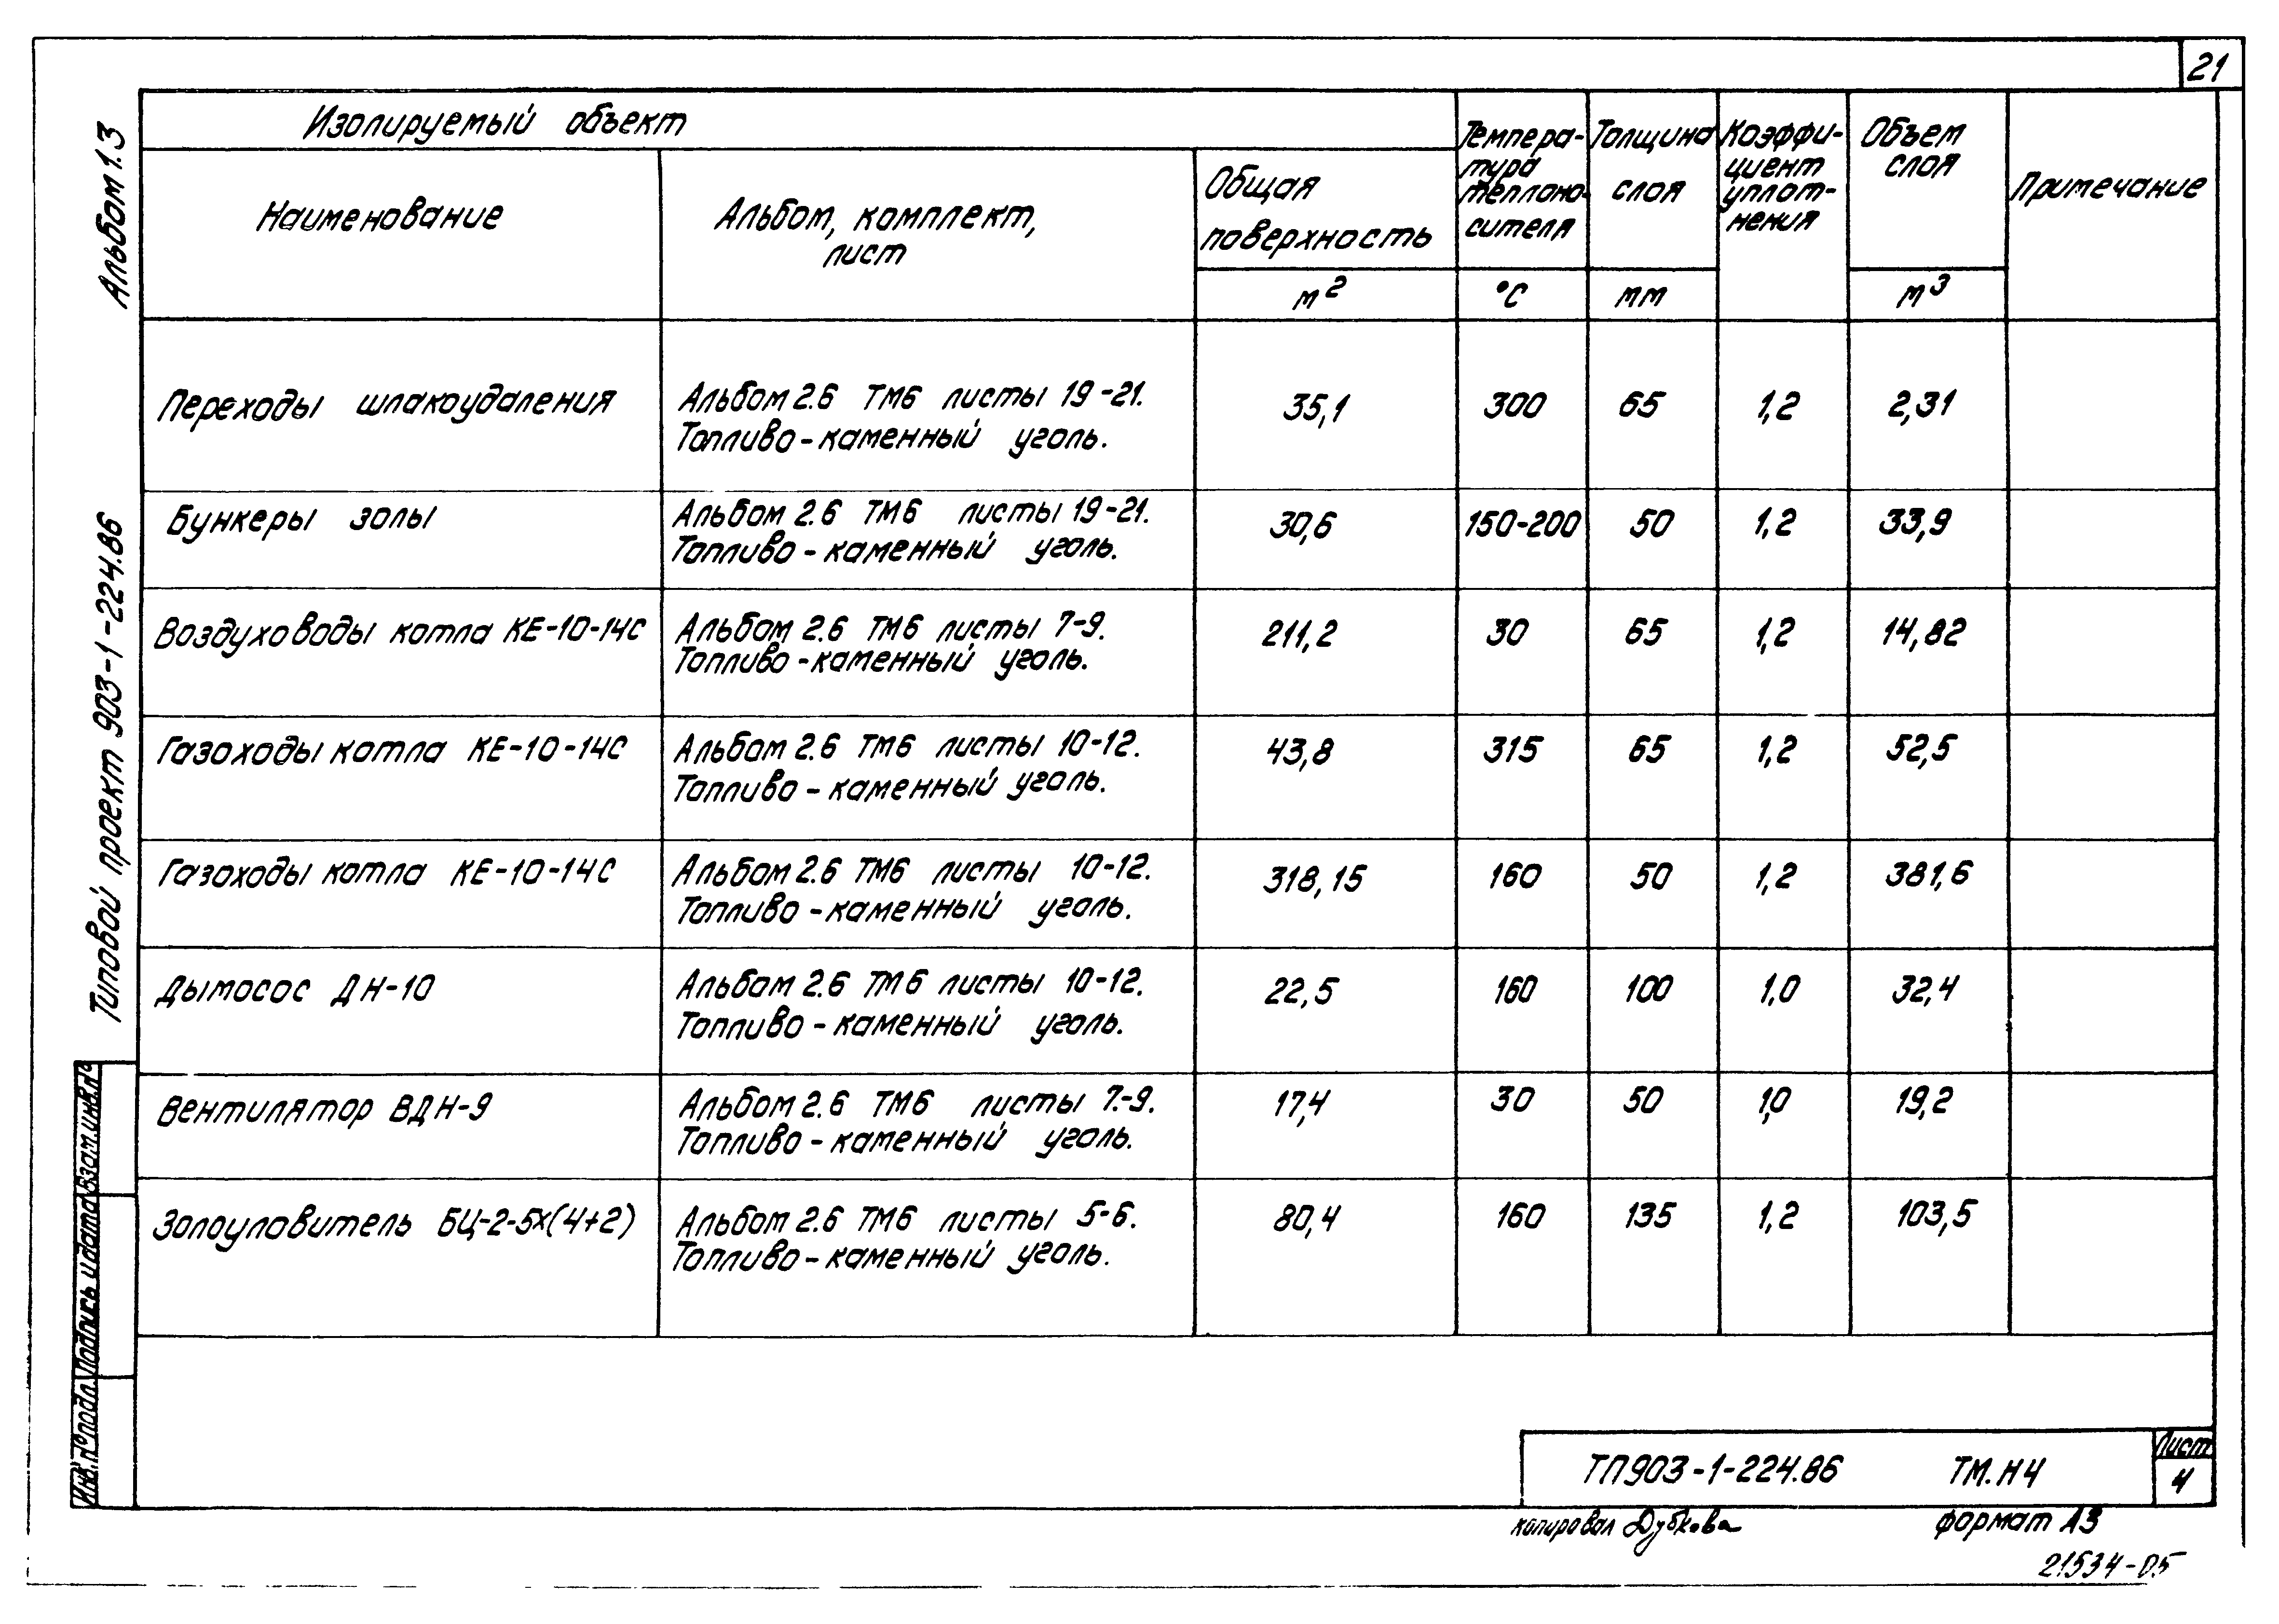 21
Альбом 1.3
Типовой проект 903-1-224.86
Изолируемый объект
Наименование
Альбом, комплект,
лист
Общая
поверхность
м²
Темпера-
тура
теплоно-
сителя
°С
Толщина
слоя
мм
Коэффи-
циент
уплот-
нения
Объем
слоя
м³
Примечание
Переходы шлакоудаления Альбом 2.6 ТМ6 листы 19-21. 35,1 300 65 1,2 2,31
Топливо-каменный уголь.
Бункеры золы Альбом 2.6 ТМ6 листы 19-21. 30,6 150-200 50 1,2 33,9
Топливо-каменный уголь.
Воздуховоды котла КЕ-10-14С Альбом 2.6 ТМ6 листы 7-9. 211,2 30 65 1,2 14,82
Топливо-каменный уголь.
Газоходы котла КЕ-10-14С Альбом 2.6 ТМ6 листы 10-12. 43,8 315 65 1,2 52,5
Топливо-каменный уголь.
Газоходы котла КЕ-10-14С Альбом 2.6 ТМ6 листы 10-12. 318,15 160 50 1,2 381,6
Топливо-каменный уголь.
Дымосос ДН-10 Альбом 2.6 ТМ6 листы 10-12. 22,5 160 100 1,0 32,4
Топливо-каменный уголь.
Вентилятор ВДН-9 Альбом 2.6 ТМ6 листы 7-9. 17,4 30 50 1,0 19,2
Топливо-каменный уголь.
Золоуловитель БЦ-2-5х(4+2) Альбом 2.6 ТМ6 листы 5-6. 80,4 160 135 1,2 103,5
Топливо-каменный уголь.
Взам.инв.№
Подпись и дата
Инв.№подл.
ТП903-1-224.86 ТМ.Н4
Лист
4
копировал Дубкова формат А3
21534-05